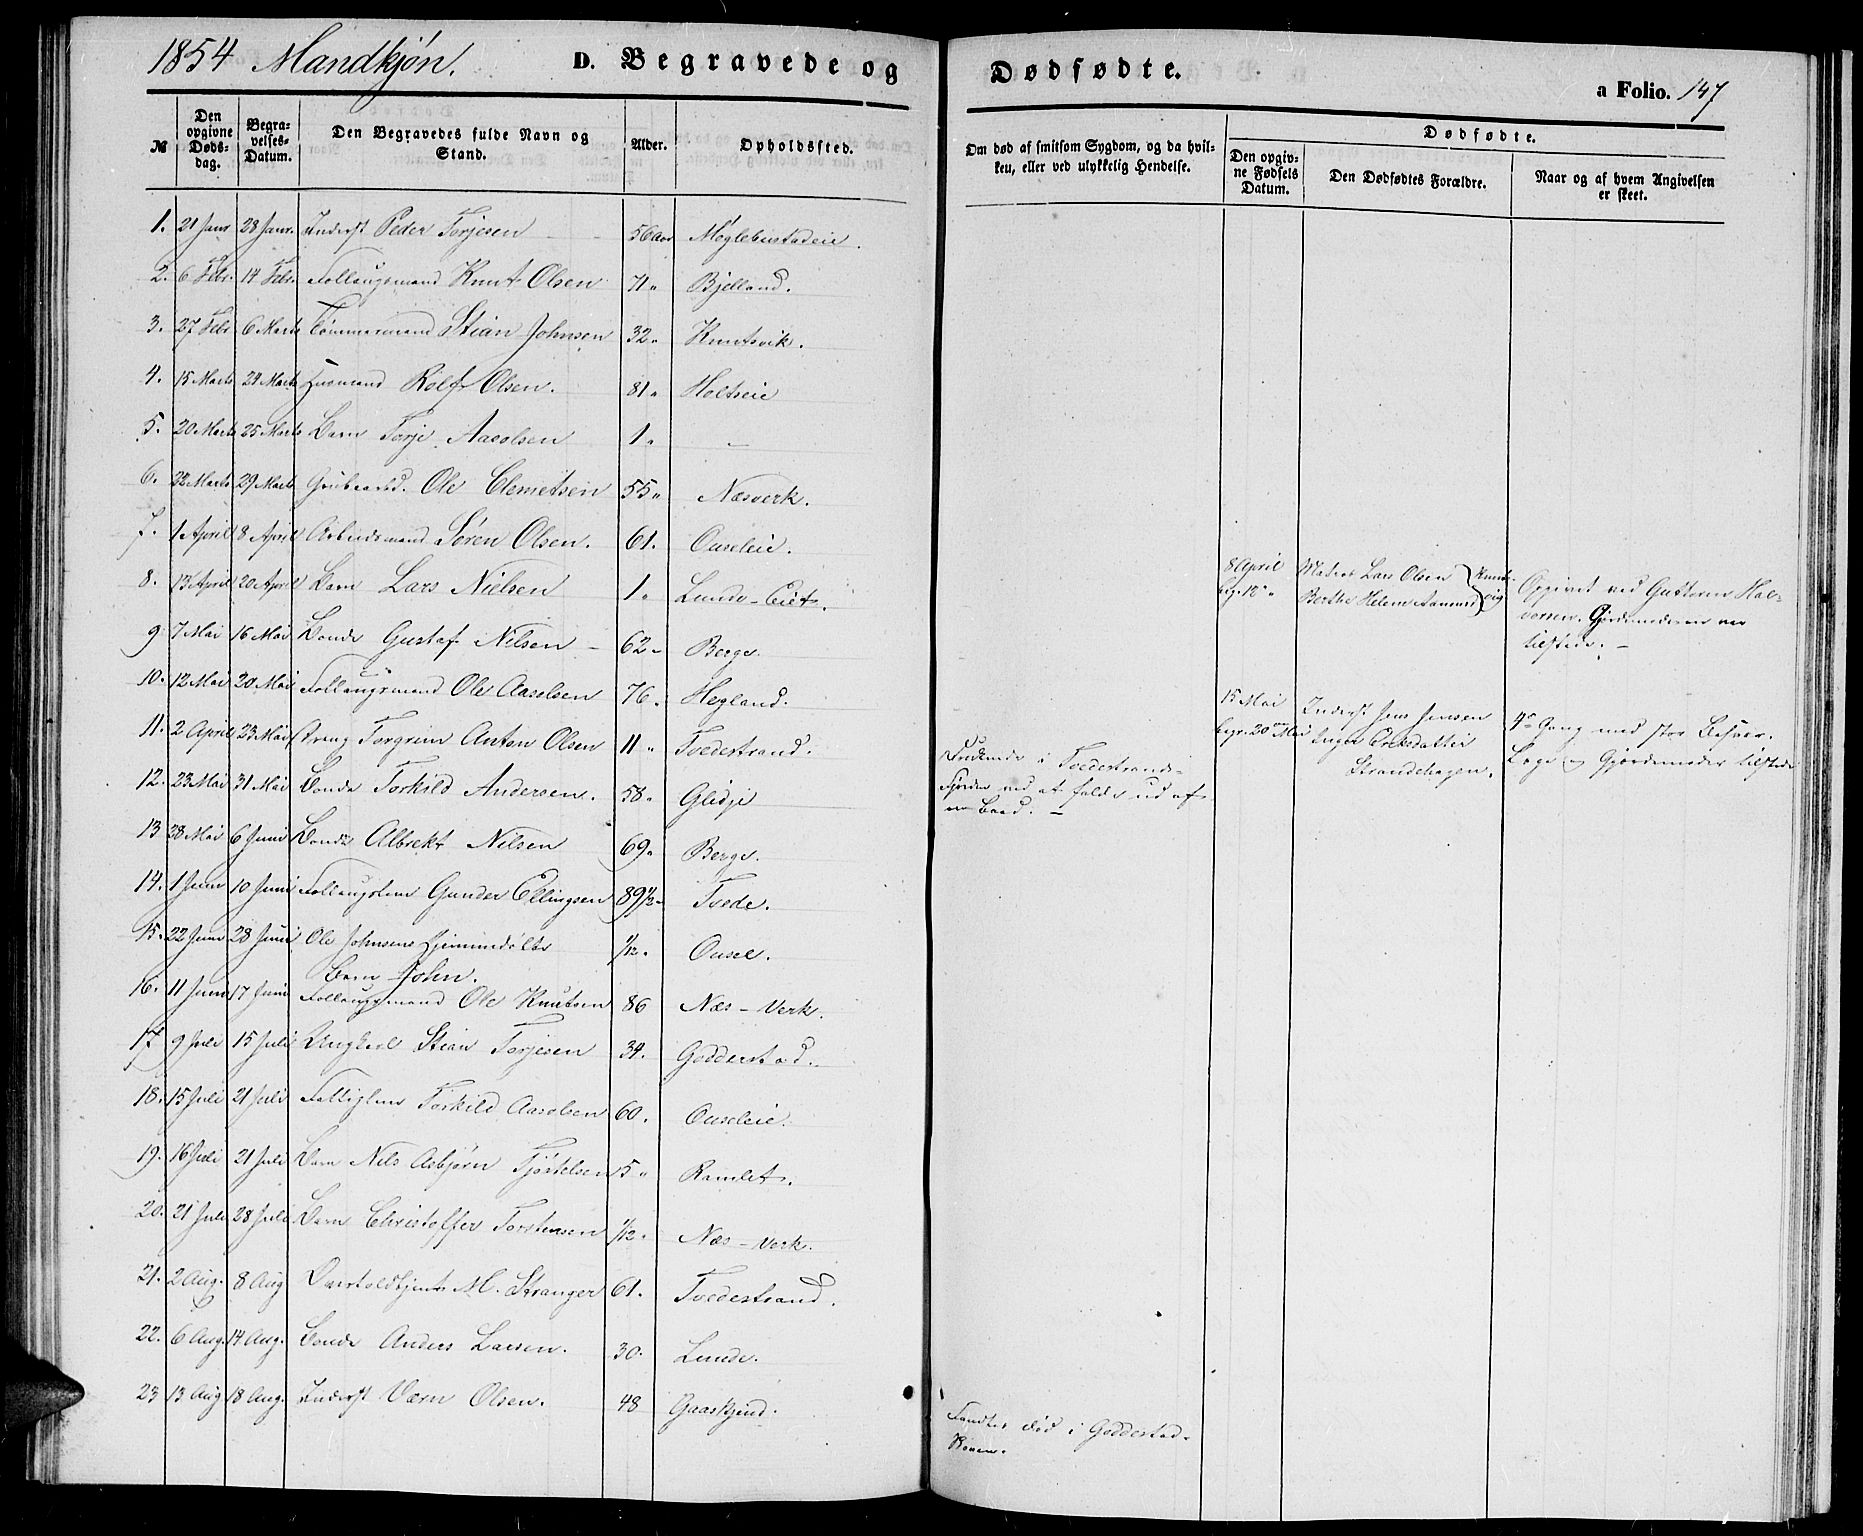 1854 Mandkjøn. D. Begravede og Dødfødte. a Folio. 147
№ Den opgivne Dødsdag. Begravelses-Datum. Den Begravedes fulde Navn og Stand. Alder. Opholdssted. Om død af smitsom Sygdom, og da hvilken, eller ved ulykkelig Hendelse. Dødfødte. Den opgivne Fødsels Datum. Den Dødfødtes Forældre. Naar og af hvem Angivelsen er skeet.
1. 21 Janr 28 Janr. Inderst Peder Torjesen 56 Aar Møglebustadeie.
2. 6 Febr. 14 Febr. Follaugsmand Knut Olsen 71 " Bjelland.
3. 27 Febr 6 Marts Tømmermand Stian Johnsen 32 " Knutsvik.
4. 15 Marts 24 Marts Husmand Rolf Olsen. 81 " Holtseie
5. 20 Marts 25 Marts Barn Torje Aasolsen 1 " –
6. 22 Marts 29 Marts Grubearbd. Ole Clemetsen 55 " Næsverk.
7. 1 April 8 April Arbeidsmand Søren Olsen. 61. Ouseleie.
8. 13 April 20 April Barn Lars Nielsen 1 " Lunde-Eiet.
8 April Matros Lars Olsen Knuts-
beg. 18 " Berthe Helene Aanonsd vig
Opgivet ved Guttorm Hal-
vorsen. Gjordemoderen var
tilstede. –
9. 7 Mai 16 Mai Bonde Gustaf Nilsen – 62 " Berge.
10. 12 Mai 20 Mai Follaugsmand Ole Aasolsen 76 " Hegland.
11. 2 April 23 Mai Dreng Torgrim Anton Olsen 11 " Tvedestrand.
Druknede i Tvedestrands-
Fjorden ved at falde ud af
en Baad. –
15 Mai Inderst Jens Jensen
begr. 20 Mai Inger Eriksdatter
Strandehagen.
4de Gang med stor Besvær.
Læge og Gjordemoder tilstede
12. 23 Mai 31 Mai Bonde Torkild Andersen. 58 " Glidje
13 28 Mai 6 Juni Bonde Albrekt Nilsen 69 " Berge.
14. 1 Juni 10 Juni Follaugslem Gunder Ellingsen 89 1/2 " Tvede.
15. 22 Juni 28 Juni Ole Johnsens hjemmedøbte 1/12. Ousel.
Barn John.
16. 11 Juni 17 Juni Follaugsmand Ole Knutsen 86 Næs-Verk.
17 9 Juli 15 Juli Ungkarl Stian Torjesen 34. Godderstad.
18. 15 Juli 21 Juli Fattiglem Torkild Aasolsen 60. Ouseleie.
19. 16 Juli 21 Juli Barn Nils Asbjørn Tjøstelsen 5 " Ramlet.
20. 21 Juli 28 Juli Barn Christoffer Torstensen 1/12. Næs-Verk.
21. 2 Aug. 8 Aug Overtoldbetjent M. Stranger 61. Tvedestrand.
22. 6 Aug. 14 Aug. Bonde Anders Larsen. 30. Lunde.
23 13 Aug 18 Aug. Inderst Værn Olsen. 48 Gaaskjend.
Fandtes død i Godderstad-